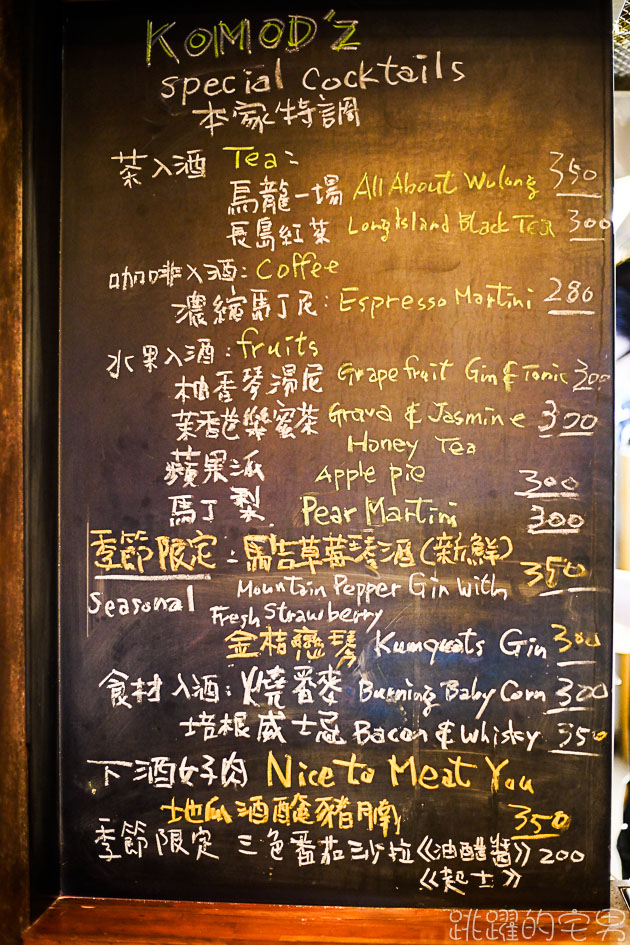 KOMOD'Z
special cocktails
本家特調
茶入酒 Tea:
馬龍一場 All About Wulong 350
長島紅茶 Long Island Black Tea 300
咖啡入酒: Coffee
濃縮馬丁尼: Espresso Martini 280
水果入酒: fruits
柚香琴湯尼 Grapefruit Gin & Tonic 300
茉香芭樂蜜茶 Grava & Jasmine 300
Honey Tea
蘋果派 Apple pie 300
馬丁梨 Pear Martini 300
季節限定: 馬告草莓琴酒(新鮮) 350
seasonal Mountain Pepper Gin with
Fresh Strawberry
金桔戀琴 Kumquats Gin 300
食材入酒: 燒番麥 Burning Baby Corn 300
培根威士忌 Bacon & Whisky 350
下酒好肉 Nice to Meat You
地瓜酒醃豬腩 350
季節限定 三色番茄沙拉《油醋醬》200
《起士》
跳躍的宅男